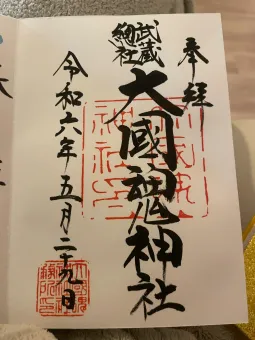 奉拝
武蔵
總社
大國魂神社
令和六年五月二十九日